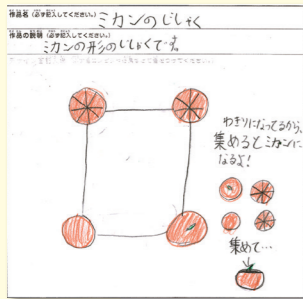 作品名（必ず記入してください。）ミカンのじしゃく
作品の説明（必ず記入してください。）
ミカンの形のじしゃくです。
わぎりになってるから、
集めるとミカンに
なるよ！
集めて…